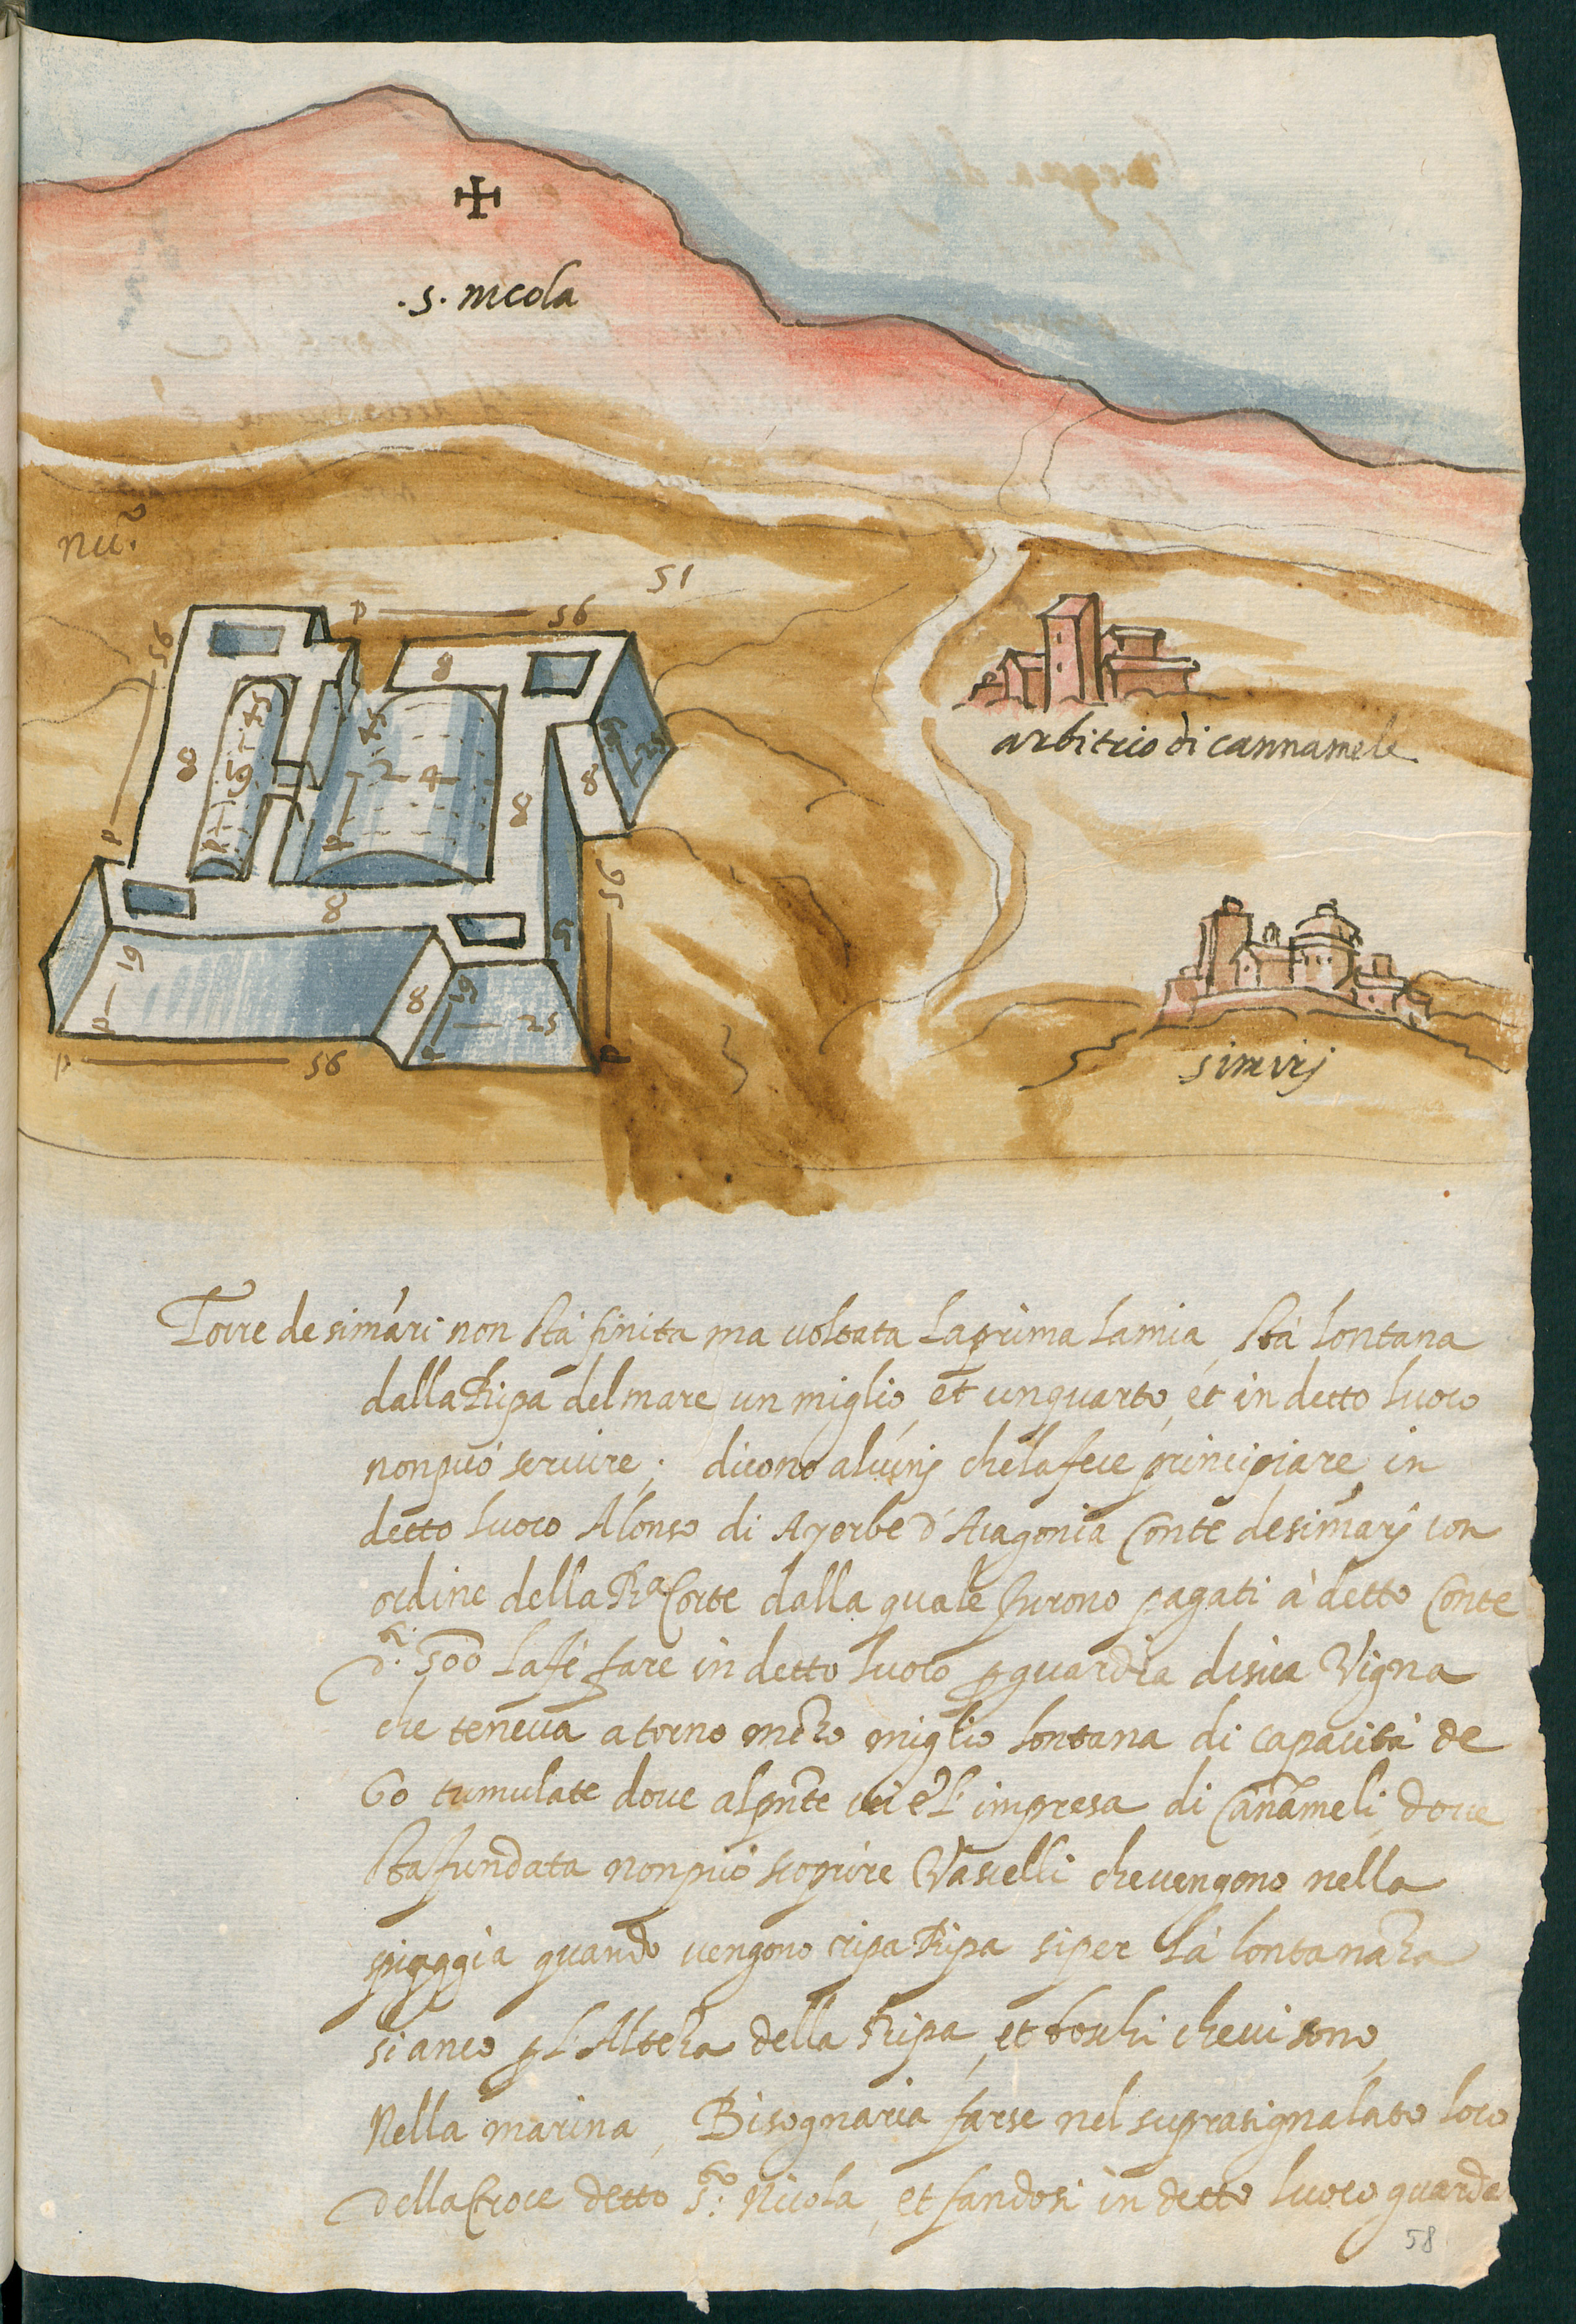 .s. nicola
nu.°
51
p 56
56 p
8
8
8
8
8
8
8
19
24
25
p 56
56 p
arbitrio di cannamele
simirj
Torre de simari non stà finita ma voltata la prima lamia, stà lontana
dalla Ripa del mare un miglio, et un quarto, et in detto luoco
non può servire; dicono alcunj che la fece principiare in
detto luoco Alonso di Ayerbe d'Aragonia Conte de simarj con
ordine della Ra Corte dalla quale furono pagati à detto Conte
d.ti 500 la fè fare in detto luoco p guardia di sua Vigna
che teneva atorno mezo miglio lontana di capacità de
60 tumulate dove al pnte vi è l'impresa di Cannameli, dove
sta fundata non può scoprire Vascelli che vengono nella
spiaggia quando vengono ripa Ripa si per la lontananza
si anco p l'Alteza della Ripa, et boschi che vi sono,
Nella marina, Bisognaria farse nel suprasignalato loco
della Croce detto S.to Nicola, et fandosi in detto luoco guarda
58